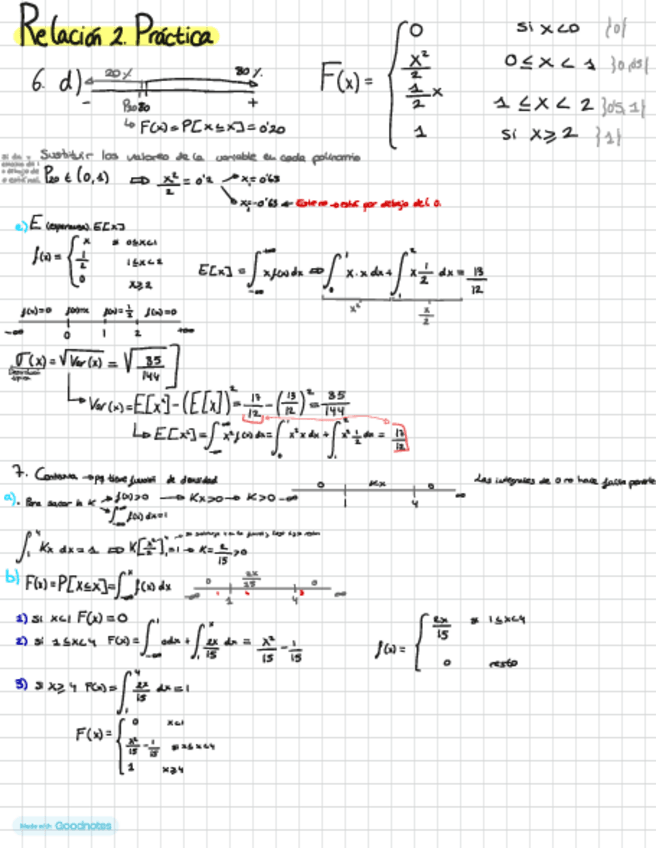 Relación 2. Práctica
6. d) 20% 80%
- P20 80 +
↳ F(x)=P[X≤x]=0'20
F(x)= { 0 si x<0 {0}
x²/2 0≤x<1
1/2 x 1≤x<2
1 si x≥2 {1}
Sustituir los valores de la variable en cada polinomio
P20 ∈ (0,1) ⇒ x²/2 = 0'2 → x=0'63
x=-0'63 ← Este no → está por debajo del 0.
e) E (esperanza). E[x]
f(x)= { x si 0≤x<1
1/2 1≤x<2
0 x≥2
E[x] = ∫_{-∞}^{+∞} x f(x) dx ⇒ ∫_0^1 x·x dx + ∫_1^2 x 1/2 dx = 13/12
x² x/2
f(x)=0 f(x)=x f(x)=1/2 f(x)=0
-∞ 0 1 2 +∞
σ(x)=√Var(x) = √(35/144)
Desviación típica
↳ Var(x)=E[x²]-(E[x])²= 17/12 - (13/12)² = 35/144
↳ E[x²]=∫_{-∞}^{∞} x² f(x) dx = ∫_0^1 x² x dx + ∫_1^2 x² 1/2 dx = 17/12
7. Continua → pq tiene función de densidad
0 Kx 0
1 4 ∞
Las integrales de 0 no hace falta ponerlas
a). Para sacar la K → f(x)>0 → Kx>0 → K>0
∫_{-∞}^{∞} f(x) dx=1
∫_1^4 Kx dx=1 ⇒ K[x²/2]=1 → K= 2/15 >0
b) F(x)=P[X≤x]=∫_{-∞}^x f(x) dx
0 2x/15 0
-∞ 1 4 ∞
1) Si x<1 F(x)=0
2) Si 1≤x<4 F(x)=∫_{-∞}^1 0dx + ∫_1^x 2x/15 dx = x²/15 - 1/15
f(x)= { 2x/15 si 1≤x<4
0 resto
3) Si x≥4 F(x)=∫_1^4 2x/15 dx=1
F(x)= { 0 x<1
x²/15 - 1/15 si 1≤x<4
1 x≥4
Made with Goodnotes